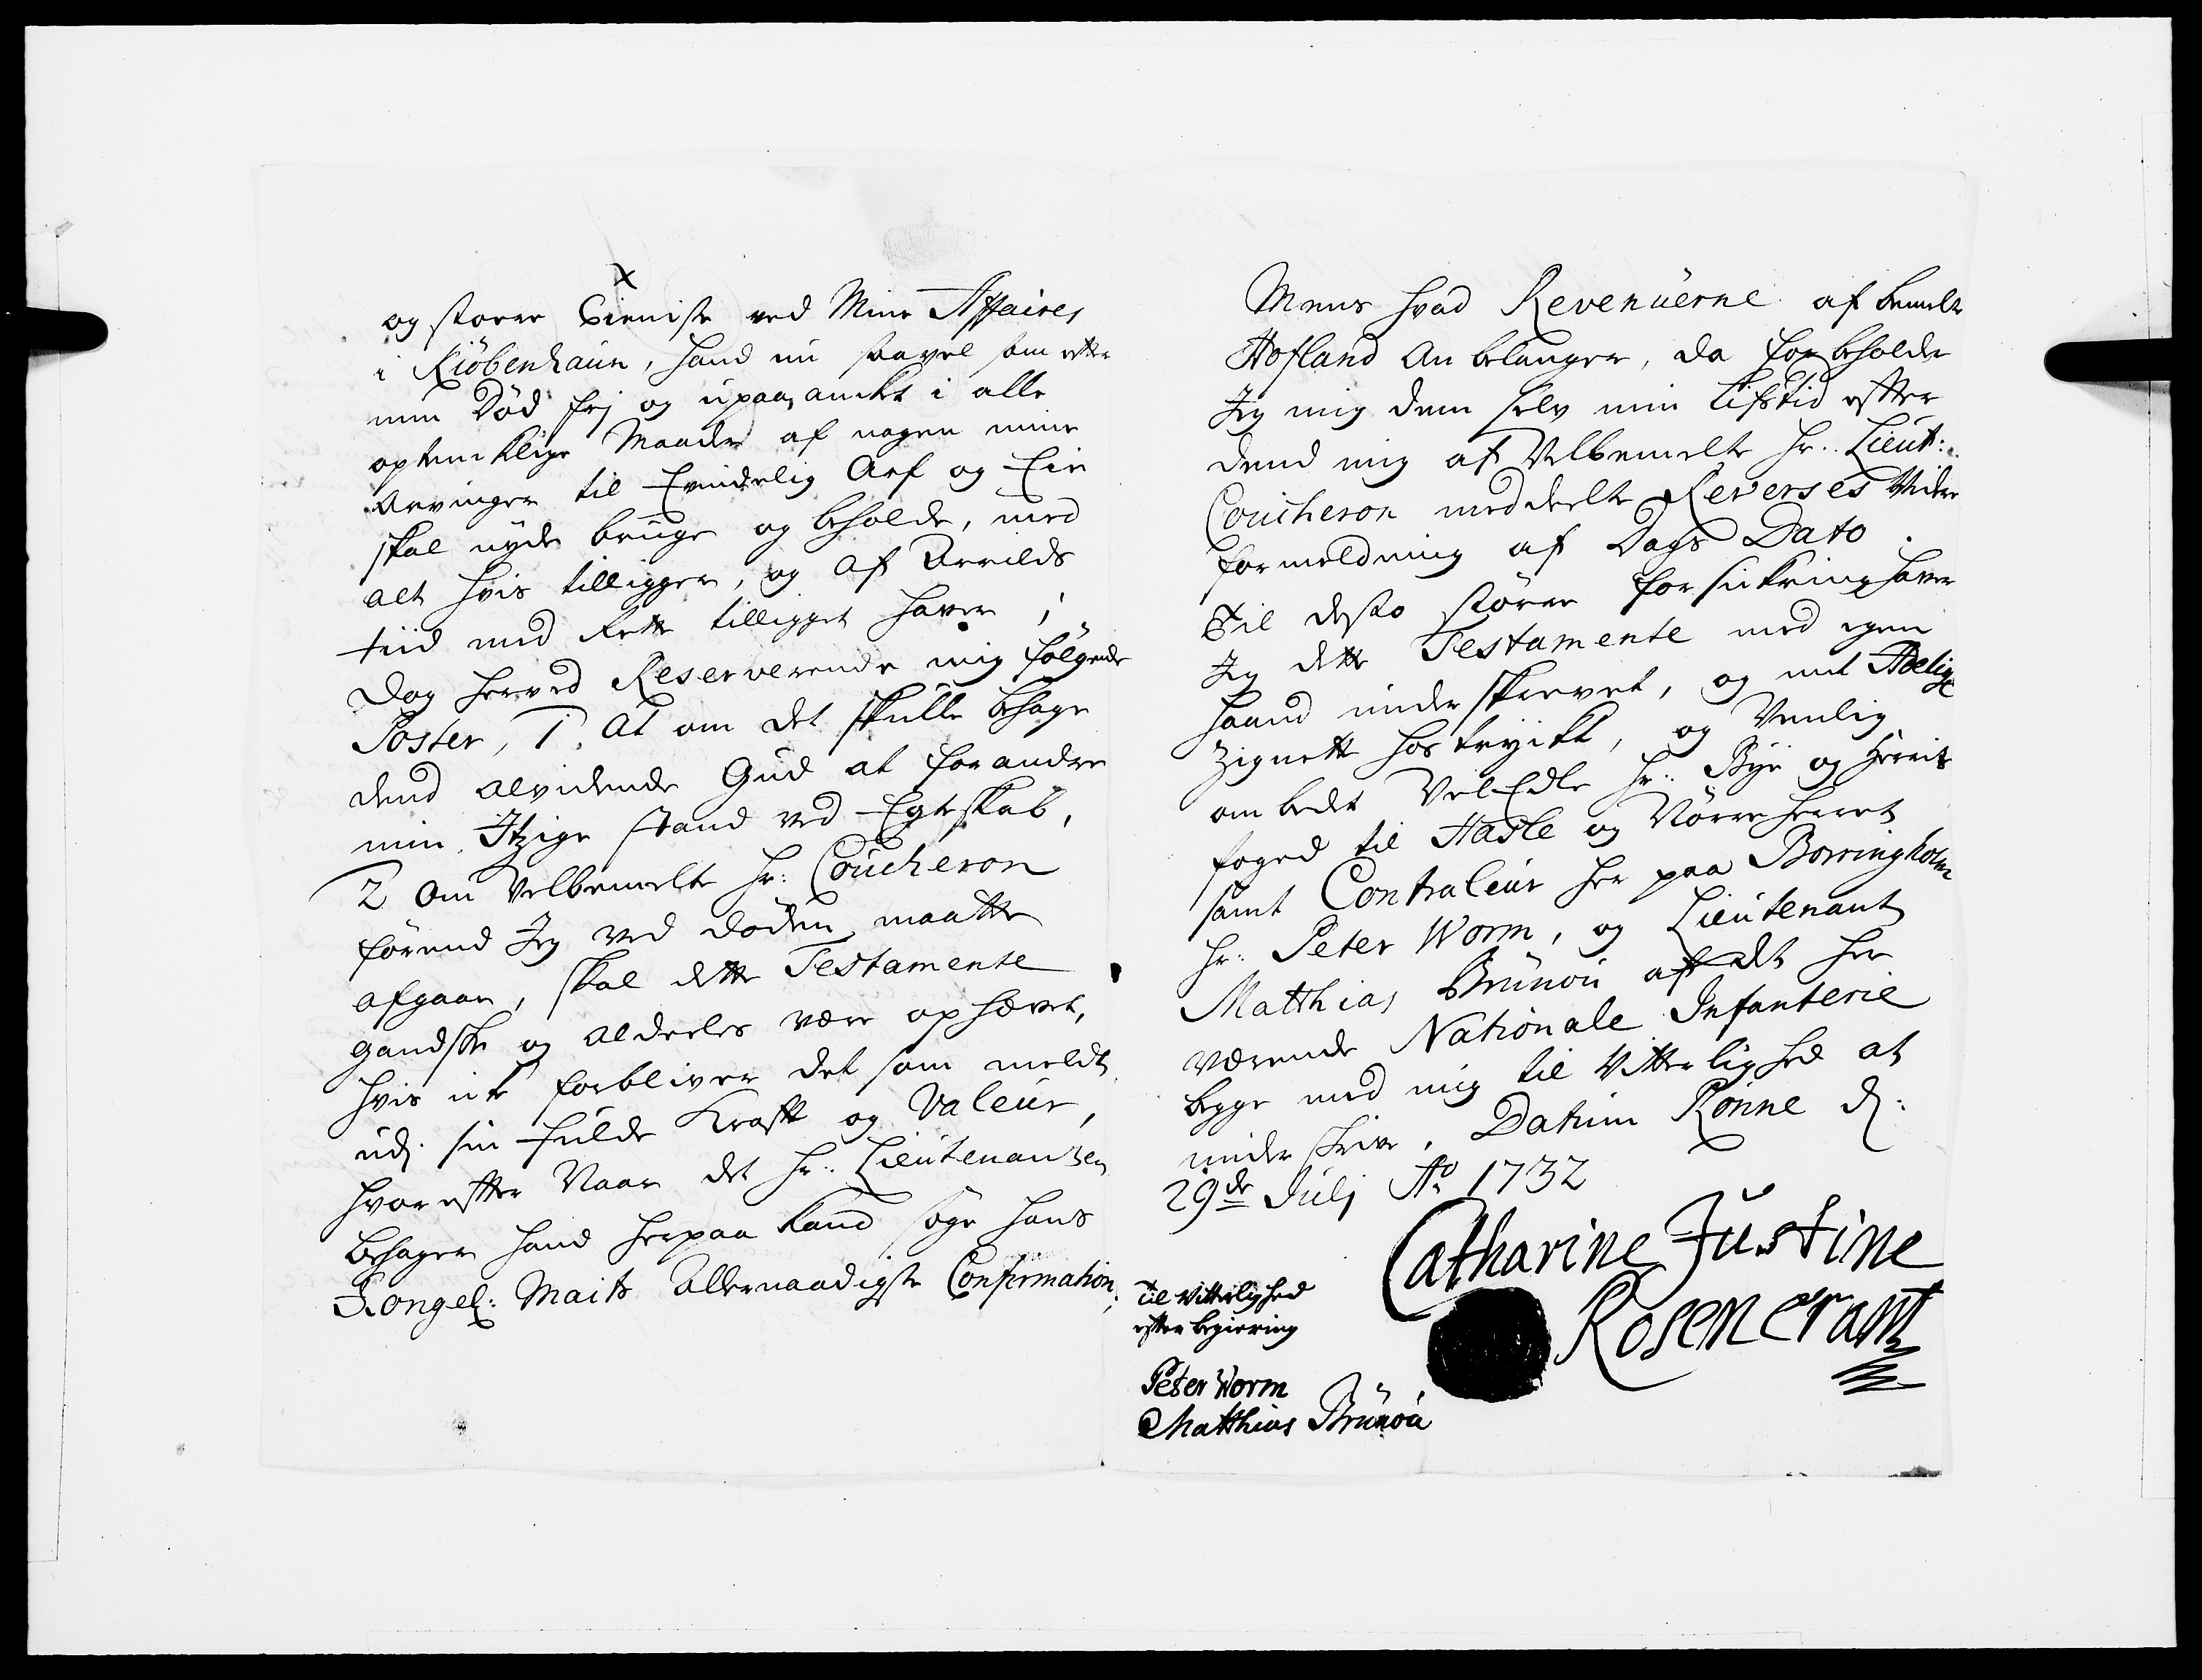 og større Tieniste ved Mine Affaires
i Kiöbenhaun, hand nu saavel som efter
min Död frj og upaaanckt i alle
optenklige Maader af nogen mine
Arvinger til Evindelig Arf og Eie
skal nyde bruge og beholde, med
alt hvis tilligger, og af Arrilds
tiid med Rette tilligget haver;
Dog herved Reserverende mig fölgende
Poster, 1. At om det skulle behage
dend alvidende Gud at forandre
min Itzige stand ved Egteskab,
2 Om Velbemelte Hr: Coucheron
förend Jeg ved döden maatte
afgaae, skal dette Testamente
gandske og aldeeles være ophævet,
hvis ik forbliver det som meldt
udj sin fulde Kraft og Valeur,
hvorefter Naar det Hr: Lieutenanten
behager hand herpaa kand söge hans
Kongel: Maits Allernaadigste Confirmation;
Mens hvad Revenüerne af bemelte
Hofland Anbelanger, da forbeholder
Jeg mig dem selv min Lifstid efter
dend mig af Velbemelte Hr. Lieut:
Coucheron meddeelte Reverses Videre
formeldning af Dags Dato.
Til desto större forsikring haver
Jeg dette Testamente med egen
haand underskrevet, og mit Adelige
Zignette hostrykt, og Venlig
ombedt VelEdle Hr. Bye og Herrits
foged til Hasle og Nörre Herret
samt Contraleur her paa Borringholm
Hr: Peter Worm, og Lieutenant
Matthias Brünou af det her
værende Nationale Infanterie
begge med mig til Vitterlighed at
underskrive. Datum Rönne d:
29de Julj Ao 1732
Catharine Justine
Rosencrantz
Til Vitterlighed
efter begiering
Peter Worm
Matthias Brünou